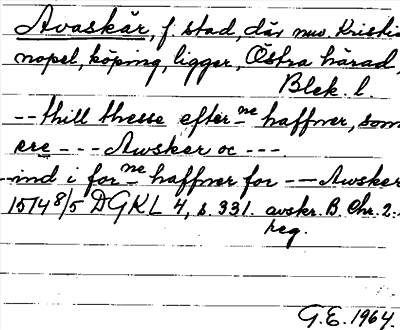 Avaskär, f. stad, där nuv. Kristia
nopel, köping, ligger, Östra härad,
Blek. l.
-- thill thesse efter ne haffner, som
ere --- Awsker oc ---.
-- ind i for ne haffner for --- Awsker
1514 8/5 DGKL 4, s. 331. avskr. B. Chr. 2:s
reg.
G.E. 1964.